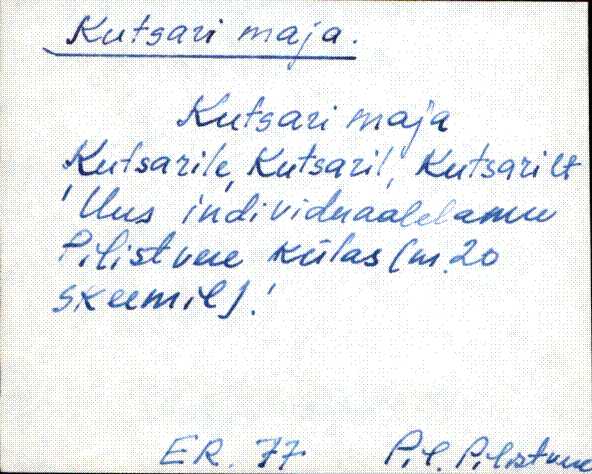 Kutsari maja.
Kutsari maja
Kutsarile, Kutsaril, Kutsarilt
'Uus individuaalelamu
Pilistvere külas (nr. 20
skeemil).'
ER. 77 Pil. Pilistvere